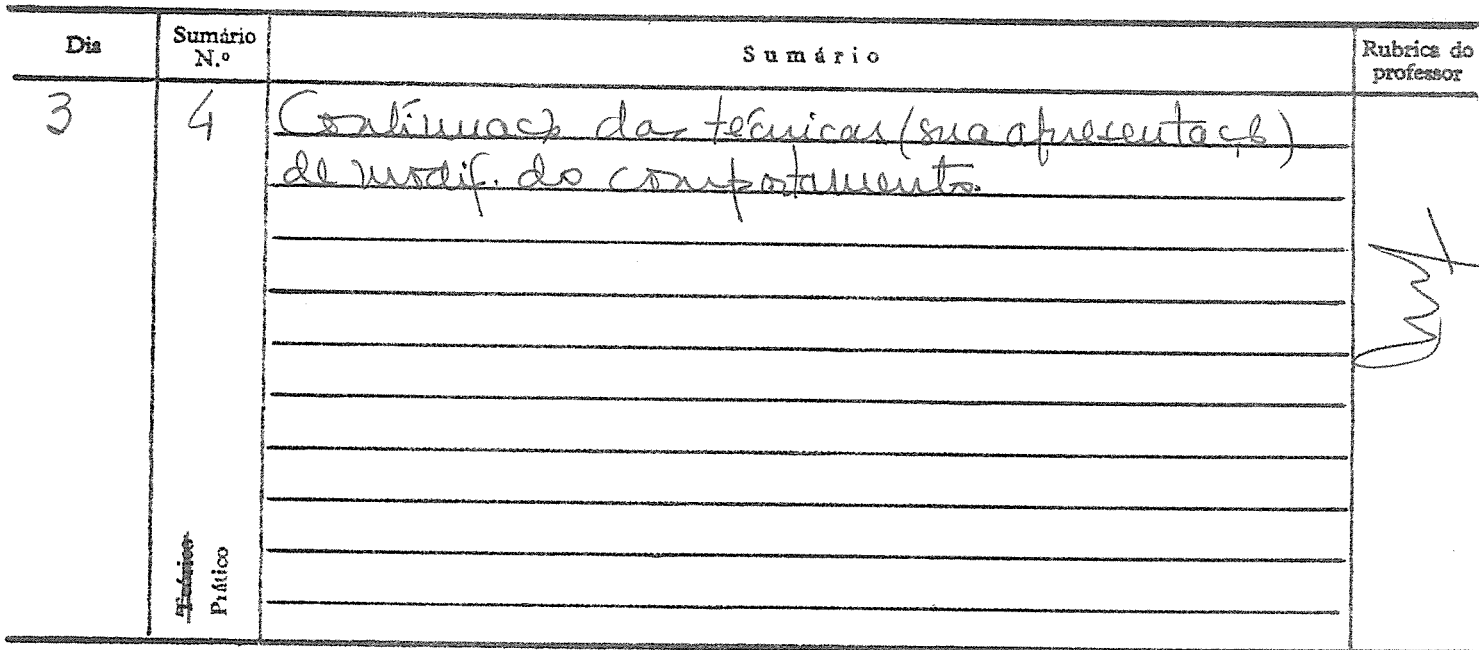 Dia Sumário N.º Sumário Rubrica do professor
3 4 Continuação das técnicas (sua apresentação)
de modif. do comportamento.
Teórico
Prático